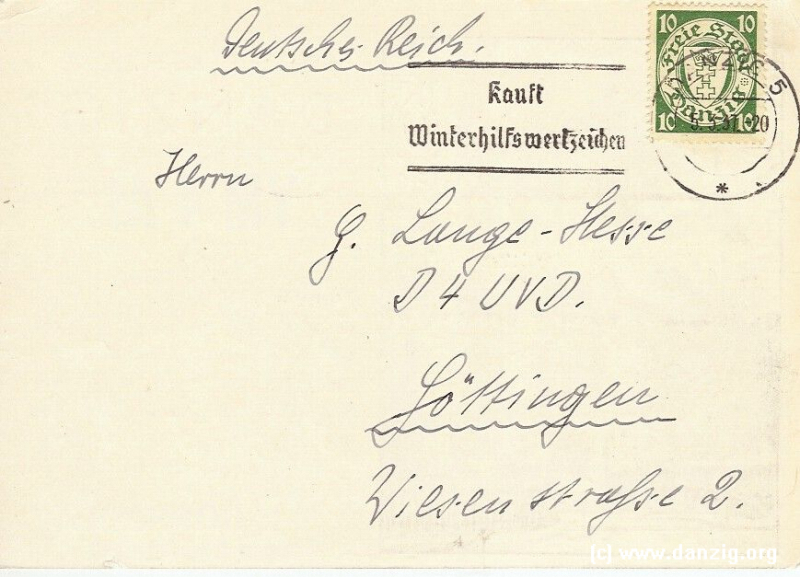 Deutsches Reich.
Kauft
Winterhilfswerkzeichen
10 10
Freie Stadt
Danzig
10 10
DANZIG 5
5.3.37.-20
*
Herrn
G. Lange-Hesse
D 4 UVD.
Göttingen
Wiesenstraße 2.
[c] www.danzig.org